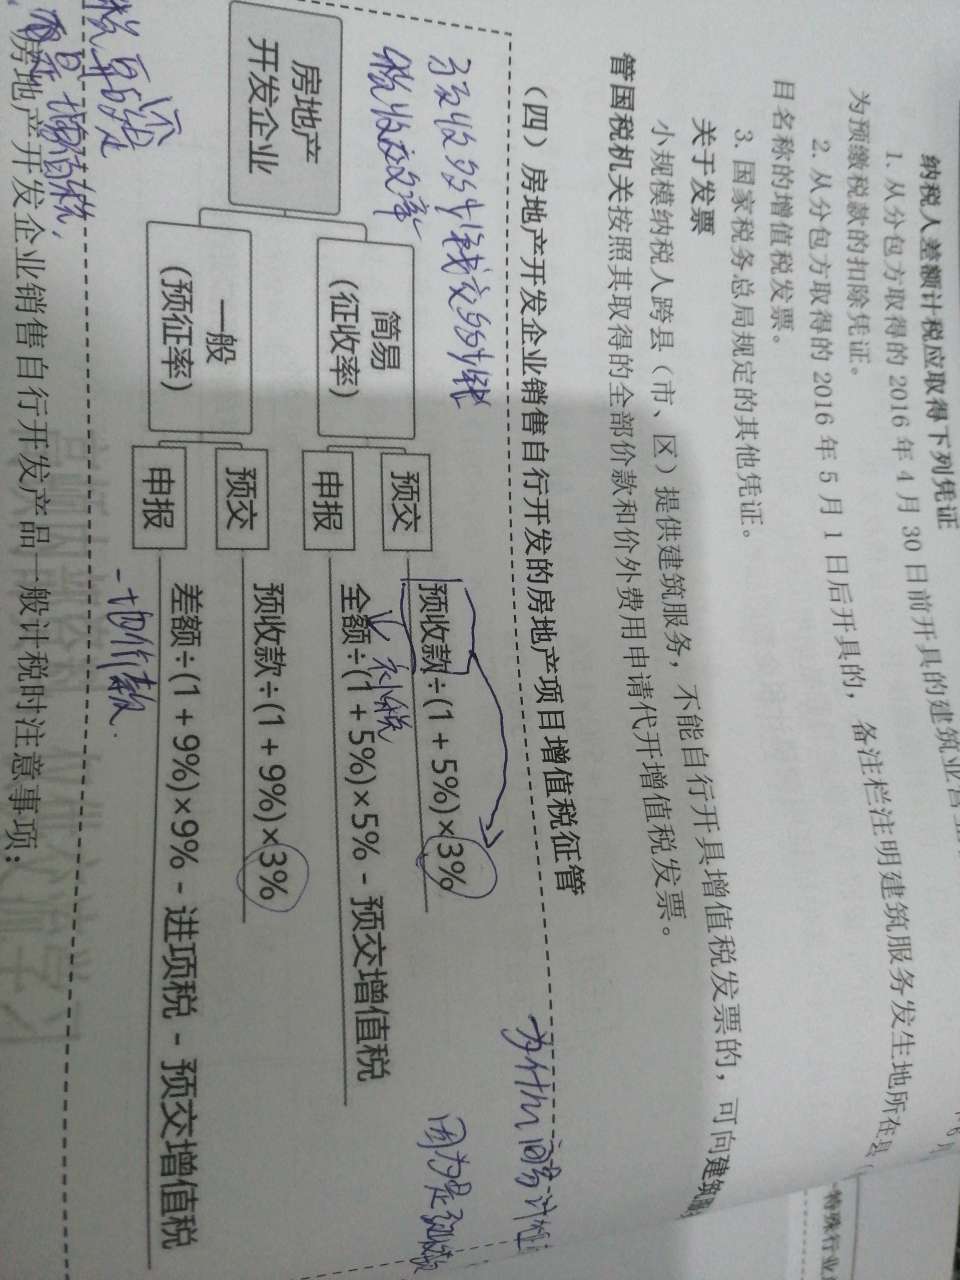 纳税人差额计税应取得下列凭证
1. 从分包方取得的 2016 年 4 月 30 日前开具的建筑业营
为预缴税款的扣除凭证。
2. 从分包方取得的 2016 年 5 月 1 日后开具的，备注栏注明建筑服务发生地所在县（
目名称的增值税发票。
3. 国家税务总局规定的其他凭证。
关于发票
小规模纳税人跨县（市、区）提供建筑服务，不能自行开具增值税发票的，可向建筑服
管国税机关按照其取得的全部价款和价外费用申请代开增值税发票。
特殊行业
（四）房地产开发企业销售自行开发的房地产项目增值税征管
为什么简易计征
因为是预收款
房地产
开发企业
简易
(征收率)
预交
预收款÷(1＋5%)×3%
申报
全额÷(1＋5%)×5%－预交增值税
补税
一般
(预征率)
预交
预收款÷(1＋9%)×3%
申报
差额÷(1＋9%)×9%－进项税－预交增值税
一切价款
房地产开发企业销售自行开发产品一般计税时注意事项：